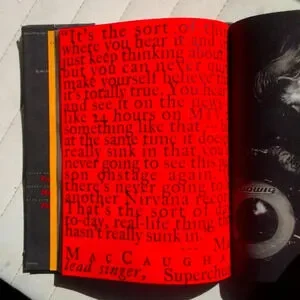 "It's the sort of thi
where you hear it and
just keep thinking about
but you can never qu
make yourself believe
it's totally true. You hear
and see it on the new
like 24 hours on MT
something like that,
at the same time it doe
really sink in that, you
never going to see this
son onstage again,
there's never going to
another Nirvana reco
That's the sort of da
to-day, real-life thing th
hasn't really sunk in.
Ma
MacCaugha
lead singer, Superch